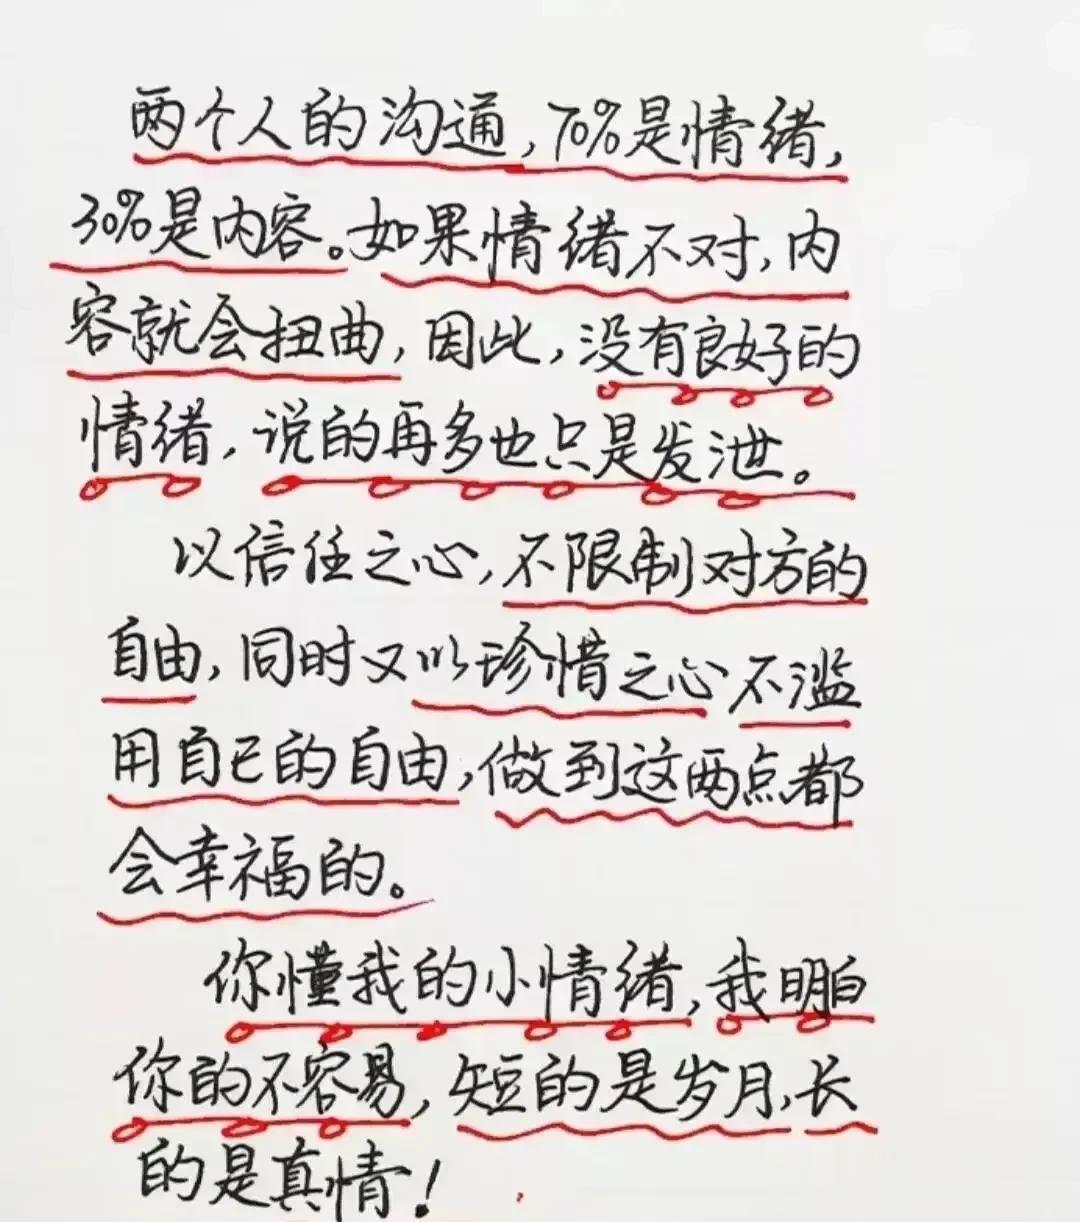 两个人的沟通,70%是情绪,
30%是内容。如果情绪不对,内
容就会扭曲,因此,没有良好的
情绪,说的再多也只是发泄。
以信任之心,不限制对方的
自由,同时又以珍惜之心不滥
用自己的自由,做到这两点都
会幸福的。
你懂我的小情绪,我明白
你的不容易,短的是岁月,长
的是真情!